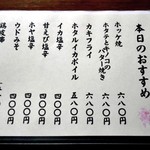 本日のおすすめ
ホッケ焼 六八〇円
ホタテとキノコの
バター焼き 六八〇円
カキフライ 六八〇円
ホタルイカボイル 五八〇円
イカ塩辛 四〇〇円
甘えび塩辛 四〇〇円
ホヤ塩辛 四〇〇円
ウドみそ 四〇〇円
鶏皮串 三〇〇円